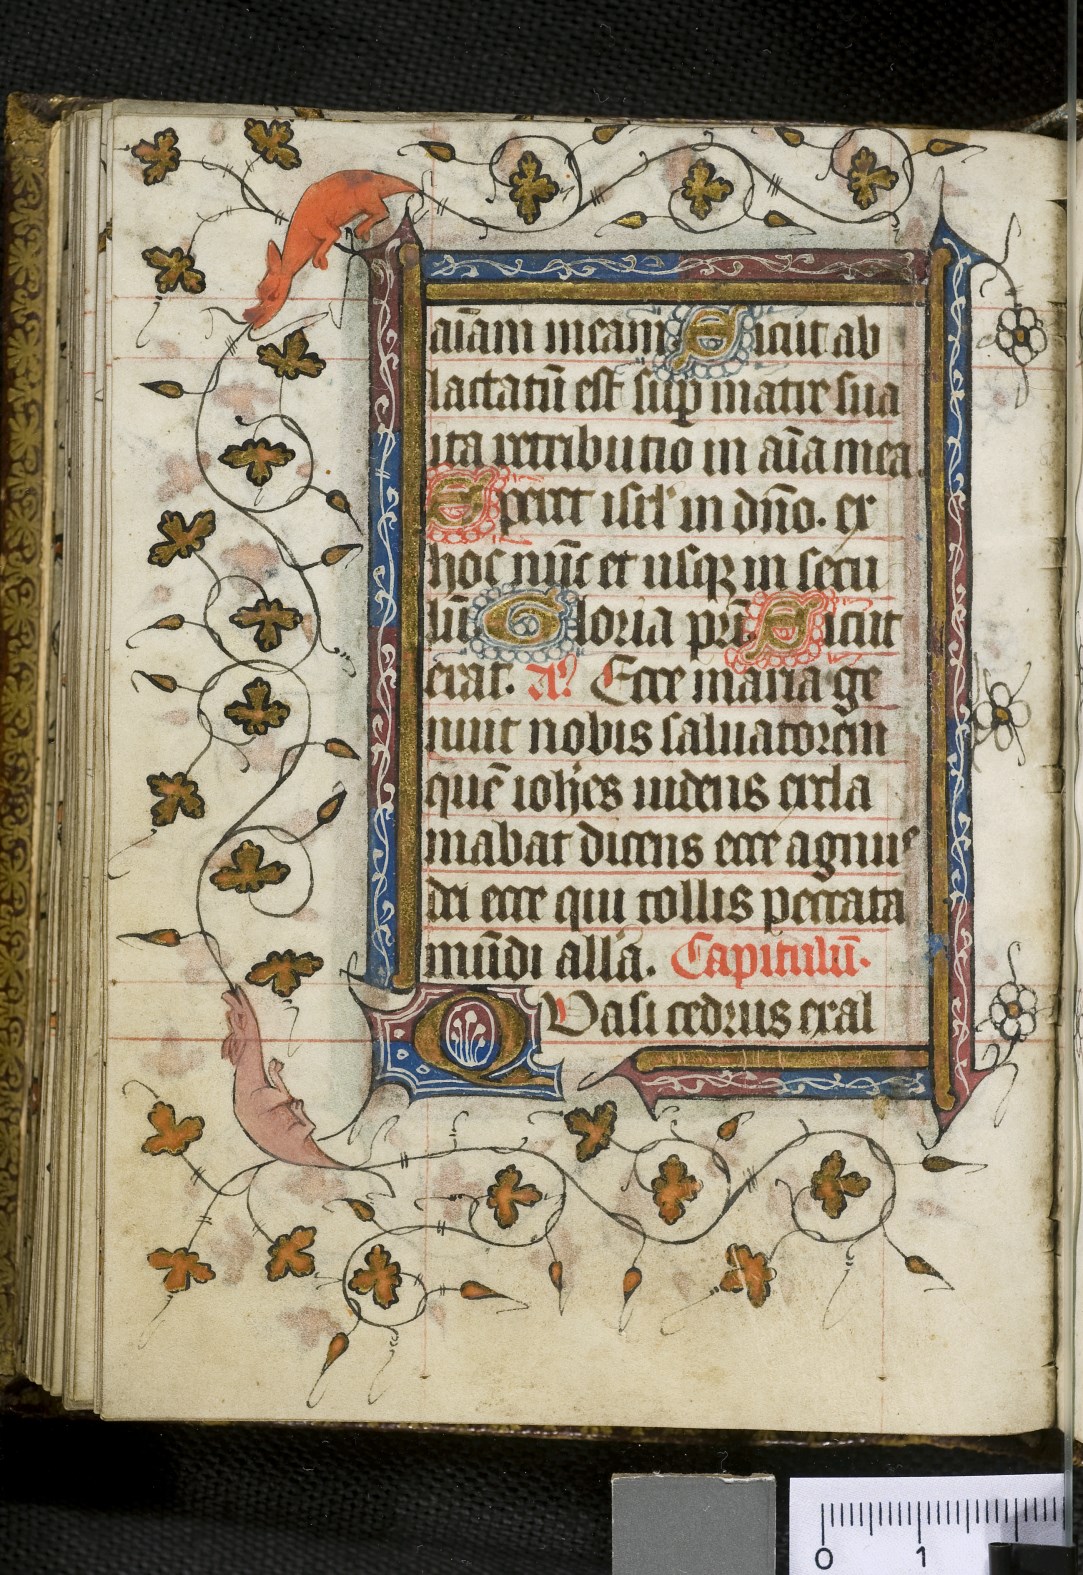 aīam meam Sicut ab
lactatū est sup matre sua
ita retributio in aīa mea.
Speret isrl' in dn̄o. ex
hoc nūc et usqꝫ in secu
lū Gloria pr̄i Sicut
erat. A᷎ Ecce maria ge
nuit nobis saluatorem
quē ioh̄es uidens excla
mabat dicens ecce agnus
dei ecce qui tollis peccata
mūdi all'a. Capitulū.
Quasi cedrus exal
0 1